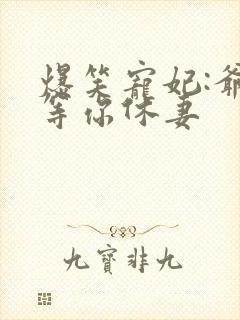 爆笑寵妃:爺
等你休妻
九寶非九